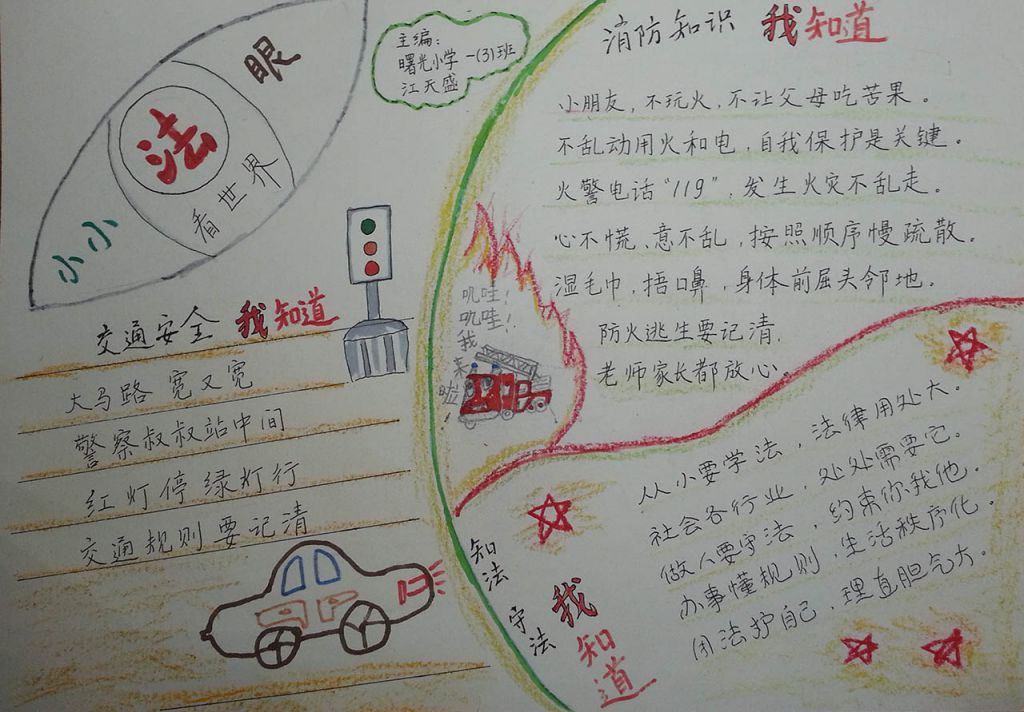 小小
法
眼
看世界
主编：
曙光小学一(3)班
江天盛
消防知识 我知道
小朋友，不玩火，不让父母吃苦果。
不乱动用火和电，自我保护是关键。
火警电话“119”，发生火灾不乱走。
心不慌、意不乱，按照顺序慢疏散。
湿毛巾，捂口鼻，身体前屈头邻地。
防火逃生要记清，
老师家长都放心。
叽哇！
叽哇！
我
来
啦
！
交通安全 我知道
大马路 宽又宽
警察叔叔站中间
红灯停 绿灯行
交通规则要记清
知法 守法 我知道
从小要学法，法律用处大。
社会各行业，处处需要它。
做人要守法，约束你我他。
办事懂规则，生活秩序化。
用法护自己，理直胆气大。